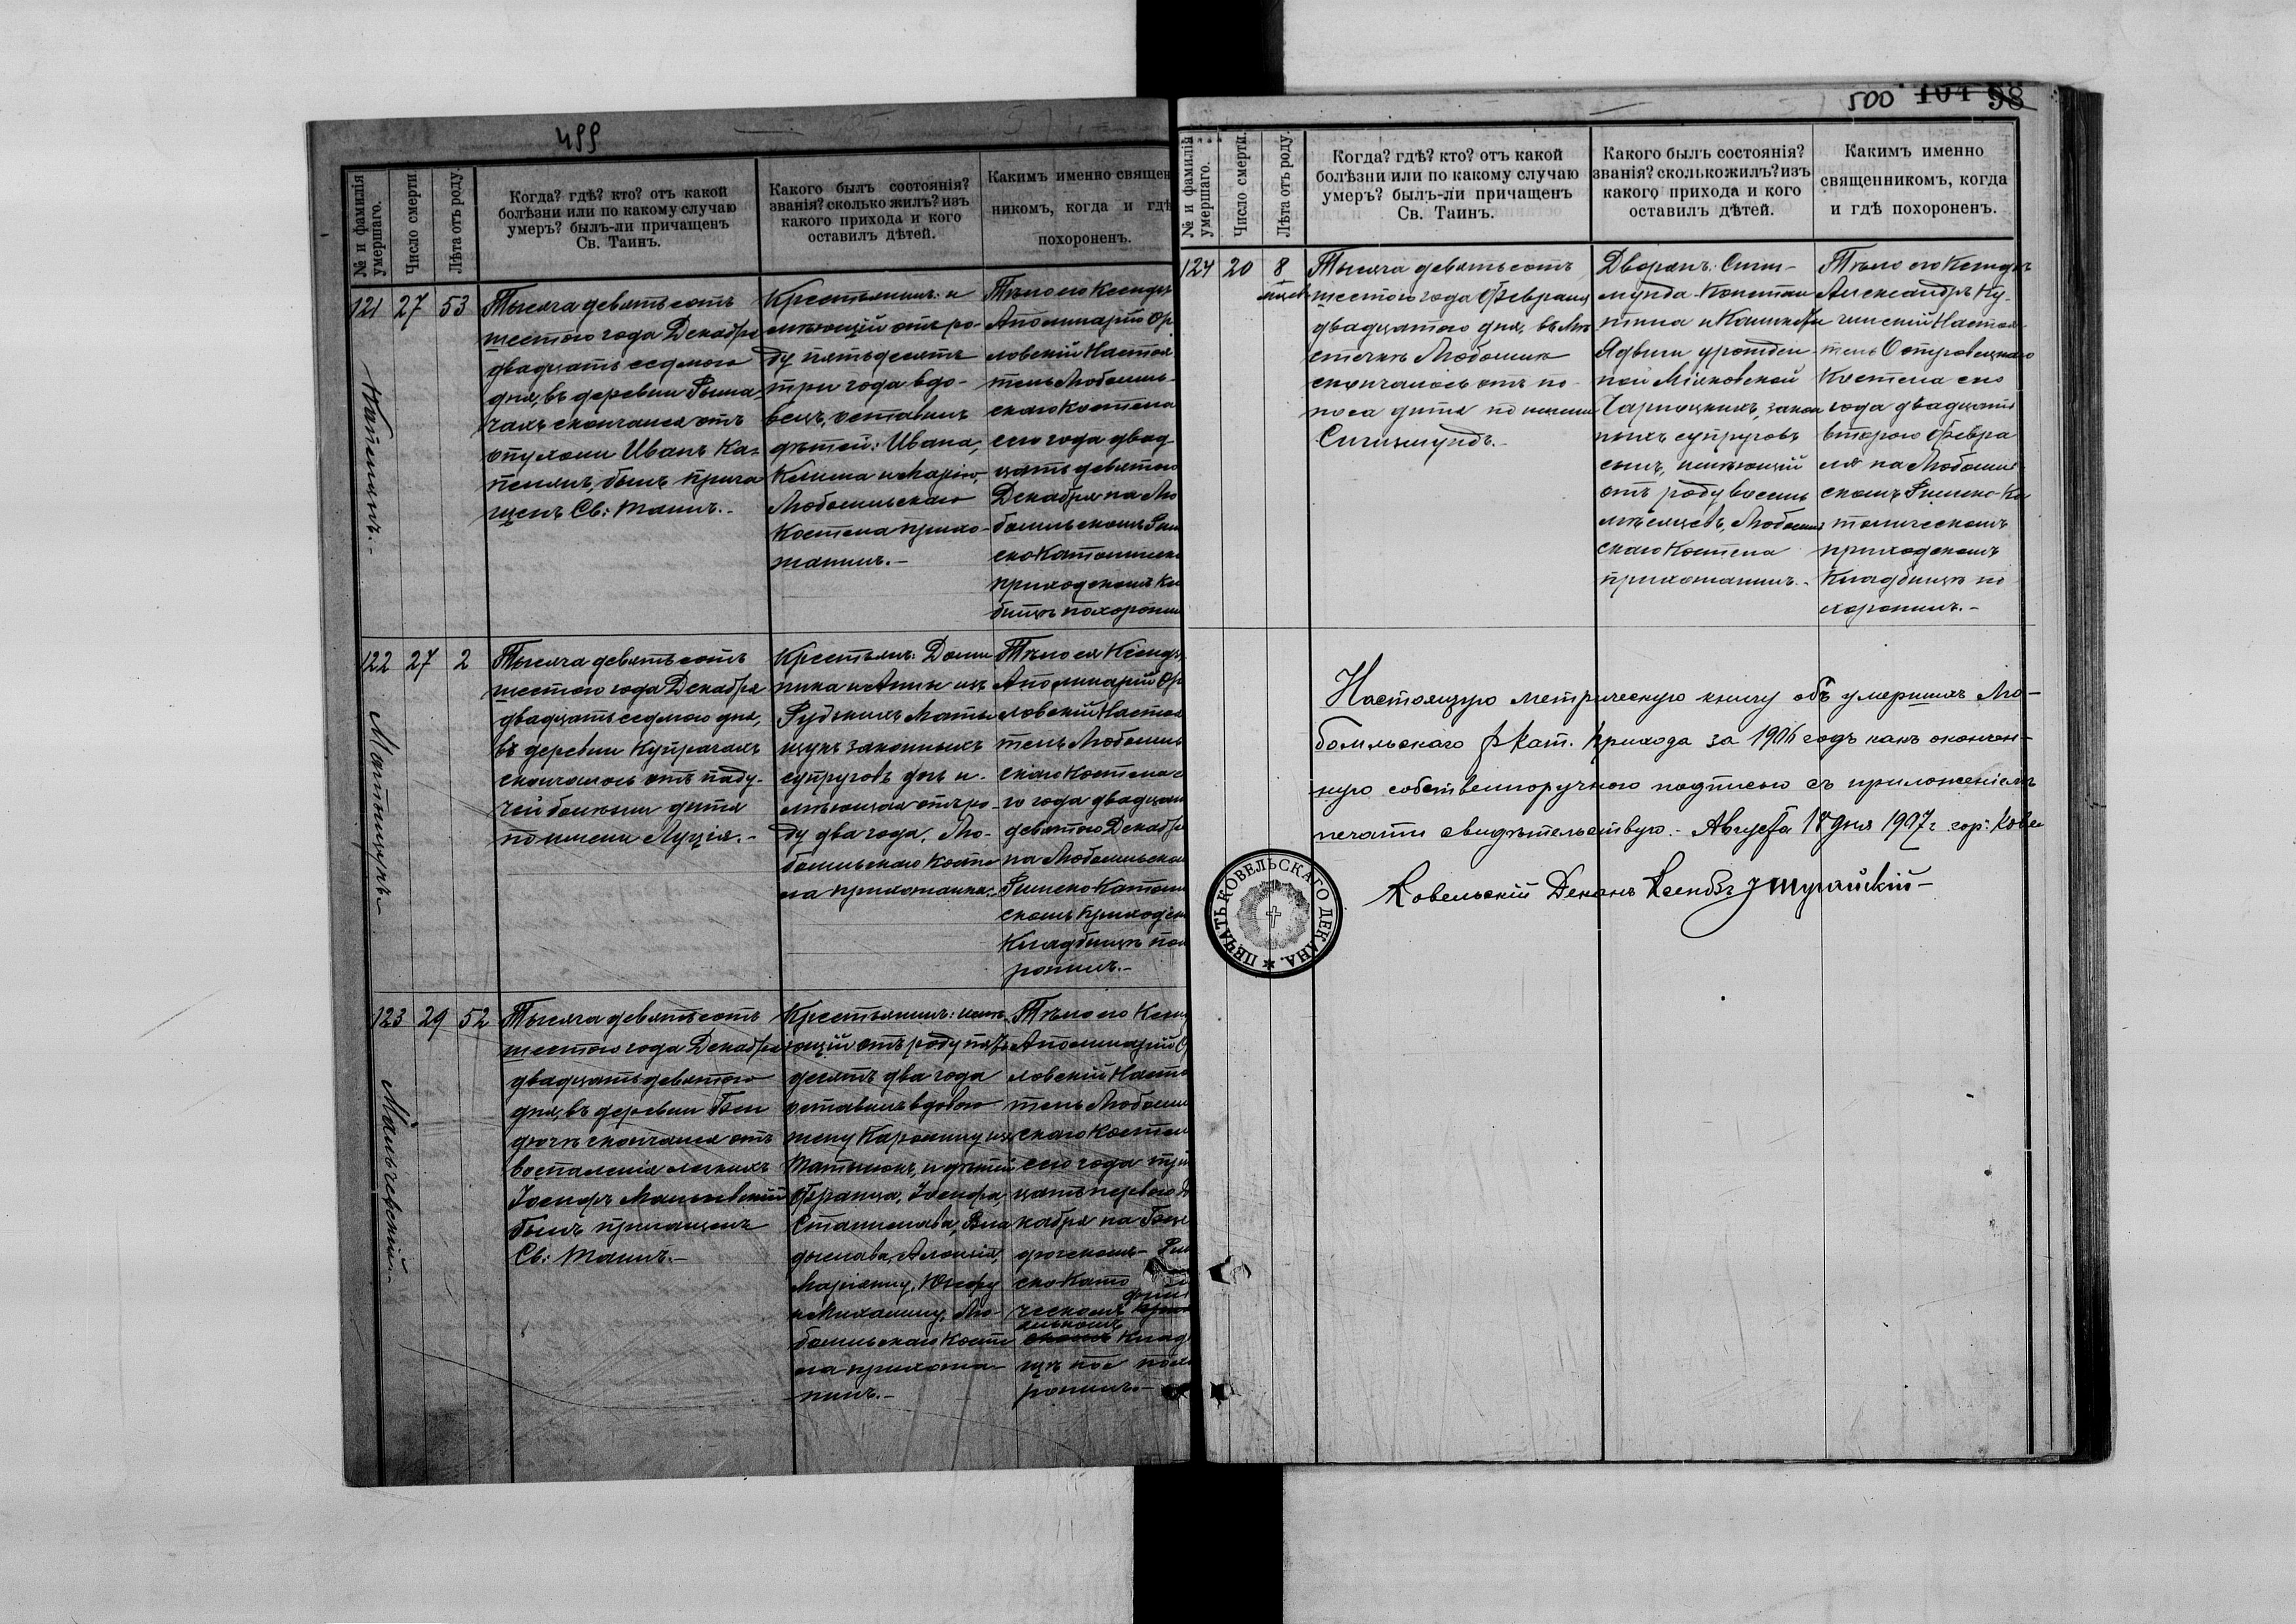 499
№ и фамилія умершаго.
Число смерти
Лѣта отъ роду
Когда? гдѣ? кто? отъ какой
болѣзни или по какому случаю
умеръ? былъ-ли причащенъ
Св. Таинъ.
Какого былъ состоянія?
званія? сколько жилъ? изъ
какого прихода и кого
оставилъ дѣтей.
Какимъ именно священ
никомъ, когда и гдѣ
похороненъ.
121
27
53
Тысяча девятьсотъ
шестого года Декабря
двадцать седмого
дня, въ деревни Рыма
чахъ скончался отъ
опухоли Иванъ Ка-
пелянъ, былъ прича
щенъ Св: Таинъ.-
Крестьянинъ: и
мѣющій отъ ро-
ду пятьдесятъ
три года вдо-
вецъ, оставилъ
дѣтей: Ивана,
и Марію,
Любомльскаго
Костела прихо-
жанинъ.-
Тѣло его Ксендзъ
Аполинарій Ор
ловскій Настоя
тель Любомль-
скаго Костела
сего года двад-
цать девятого
Декабря на Лю
бомльскомъ Рим
ско Католическ
приходскомъ Кл
бищѣ похоронил
122
27
2
Матыщукъ
Тысяча девятьсотъ
шестого года Декабря
двадцать седмого дня,
въ деревни Купрачахъ
скончалось отъ паду-
чей болѣзни дитя
по имени Луція.-
Крестьянъ: Доми
ника и Анны изъ
Рудскихъ Маты
щукъ законныхъ
супруговъ дочь и-
мѣющая отъ ро-
ду два года, Лю-
бомльскаго Косте
ла прихожанка.-
Тѣло ея Ксендз
Аполинарій Ор
ловскій Настоя
тель Любомль
скаго Костела с
го года двадцат
девятого Декабр
на Любомльском
Римско Католи
скомъ Приходск
Кладбищѣ пох
ронилъ.-
123
29
52
Мальчевскій.-
Тысяча девятьсотъ
шестого года Декабря
двадцать девятого
дня, въ деревни
скончался отъ
воспаленія легкихъ
Іосифъ Мальчевскій
былъ причащенъ
Св: Таинъ.-
Крестьянинъ: имѣ
ющій отъ роду пять
десятъ два года
оставилъ вдовою
жену Каролину изъ
и дѣтей
Франца, Іосифа,
Станислава, Вла
дыслава, Алоизія,
Маріянну, Юзефу
и Михалину, Лю-
бомльскаго Косте
ла прихожа-
нинъ.-
Тѣло его Ксен
Аполинарій О
ловскій Насто
тель Любомл
скаго Костел
сего года трид
цать первого Д
кабря на
Рим
ско Като
ческомъ
Клад
щѣ пох
ронилъ.-
500 101 98
№ и фамилія умершаго.
Число смерти.
Лѣта отъ роду.
Когда? гдѣ? кто? отъ какой
болѣзни или по какому случаю
умеръ? былъ-ли причащенъ
Св. Таинъ.
Какого былъ состоянія?
званія? сколько жилъ? изъ
какого прихода и кого
оставилъ дѣтей.
Какимъ именно
священникомъ, когда
и гдѣ похороненъ.
124
20
8
Тысяча девятьсотъ
шестого года Февраля
двадцатого дня, въ Мѣ
стечкѣ Любомлѣ
скончалось отъ по-
носа дитя по имени
Сигизмундъ.-
Дворянъ: Сигиз-
мунда-Константи
и
Ядвиги урожден-
ной
Чарноцкихъ, закон
ныхъ супруговъ
сынъ, имѣющій
отъ роду восемь
мѣсяцевъ, Любомль
скаго Костела
прихожанинъ.-
Тѣло его Ксендзъ
Александръ
Настоя-
тель Островецкаго
Костела сего
года двадцать
второго Февра
ля на Любомль
скомъ Римско-Ка
толическомъ
приходскомъ
Кладбищѣ по
хоронилъ.-
Настоящую метрическую книгу объ умершихъ Лю-
бомльскаго р. кат. прихода за 1906 годъ какъ окончен-
ную собственноручною подписью съ приложеніемъ
печати свидѣтельствую.- Августа 18 дня 1907 г. гор: Кове
Ковельскій Деканъ Ксендзъ
ПЕЧАТЬ КОВЕЛЬСКАГО ДЕКАНА.